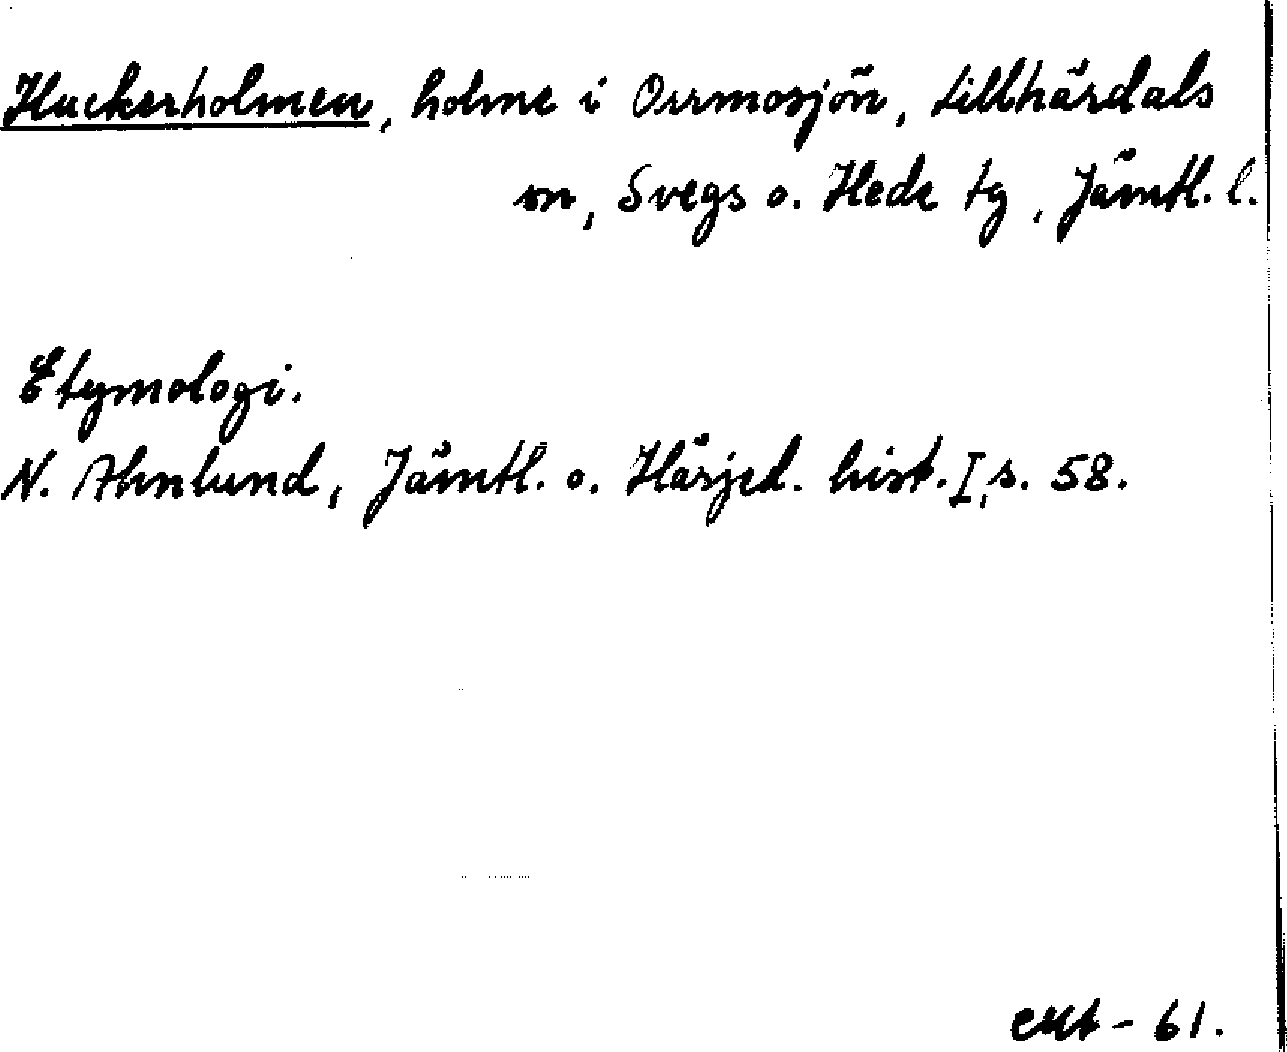 Huckerholmen, holme i Orrmosjön, Lillhärdals
sn, Svegs o. Hede tg, Jämtl. l.
Etymologi.
N. Ahnlund, Jämtl. o. Härjed. hist. I, s. 58.
61.